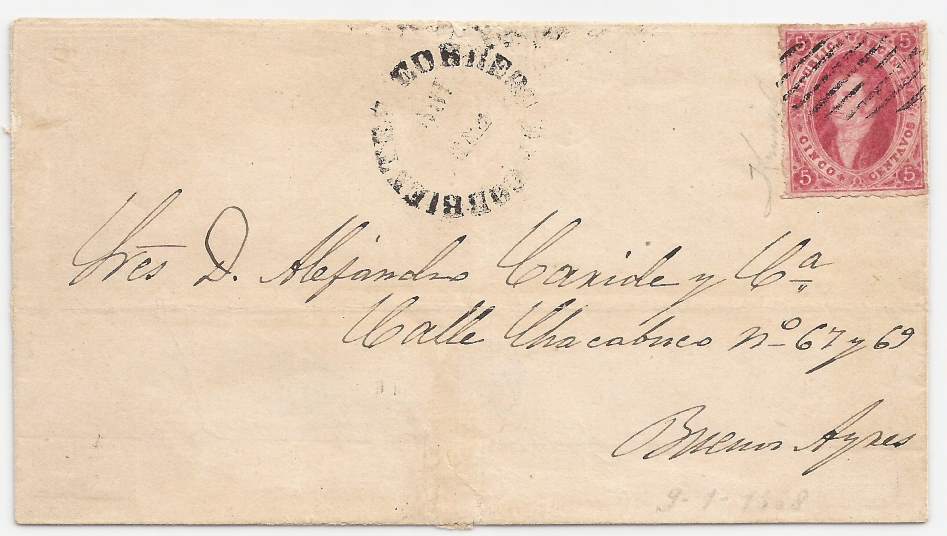 CORREOS DE CORRIENTES
5 5
REPUBLICA
CINCO CENTAVOS
5 5
Sres D. Alejandro Caride y Ca
Calle Chacabuco No 67 y 69
Buenos Ayres
9-1-1868